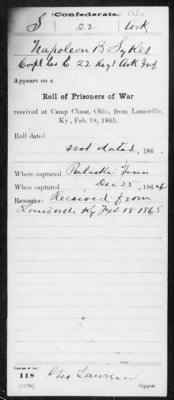 (Confederate.)
S 22 Ark
Napoleon B Sykes
Corpl Co C 22 Regt Ark Inf
Appears on a
Roll of Prisoners of War
received at Camp Chase, Ohio, from Louisville,
Ky., Feb. 18, 1865.
Roll dated
not dated, 186 .
Where captured Pulaski Tenn
When captured Dec 25, 1864
Remarks: Received from
Louisville Ky Feb 18 1865
Number of roll:
118
Geo Lawrence
Copyist.